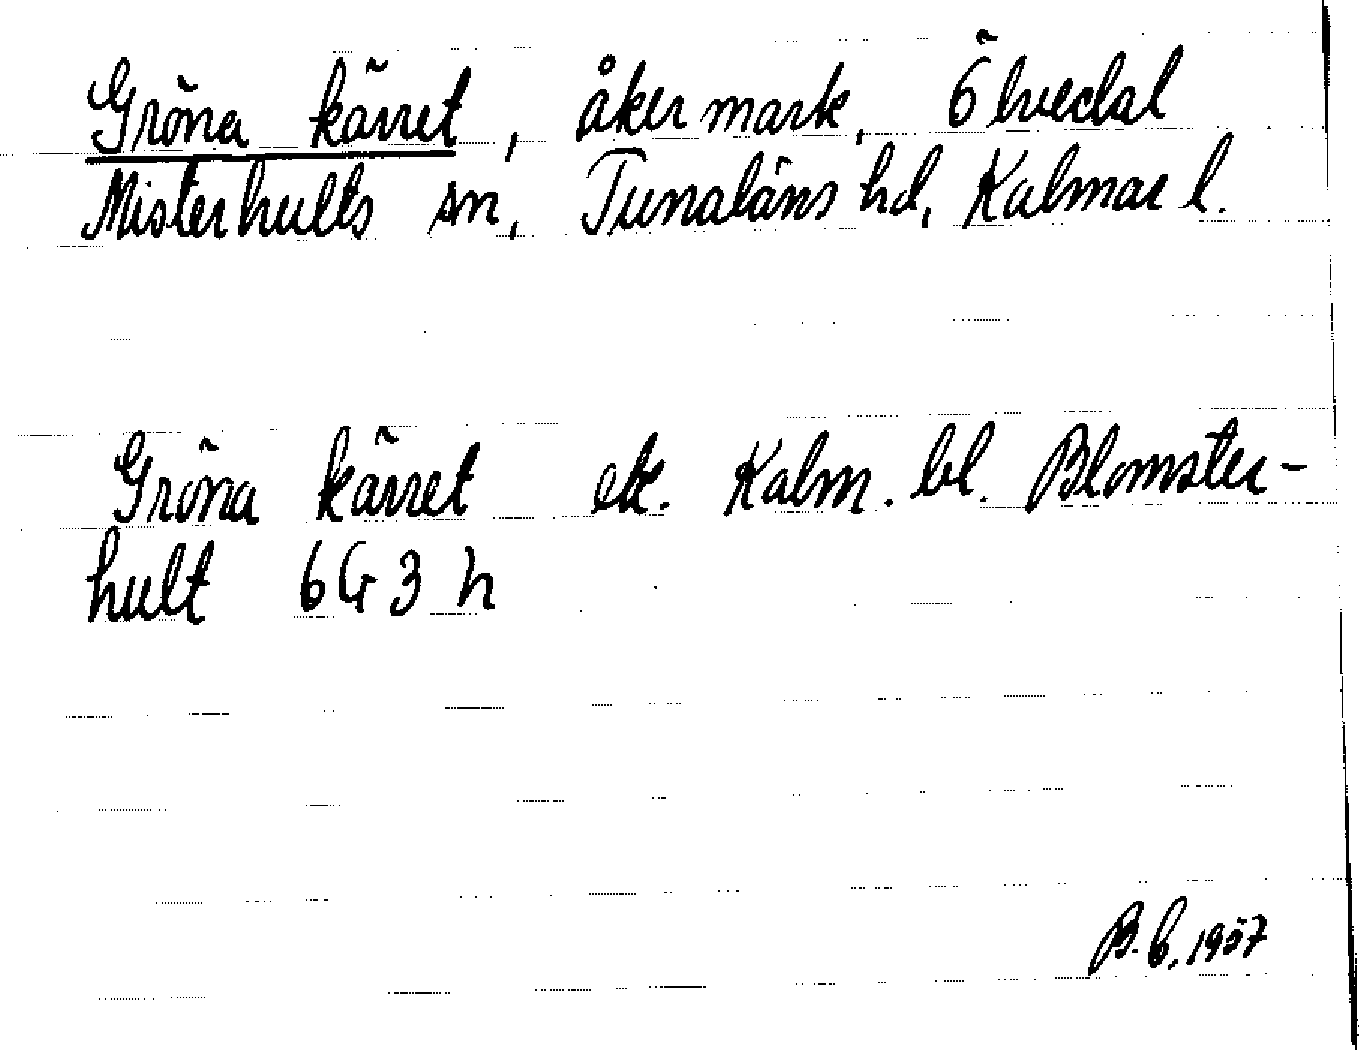 Gröna kärret, åkermark, Ölvedal
Misterhults sn, Tunaläns hd, Kalmar l.
Gröna kärret ek. Kalm. bl. Blomster-
hult 6G3h
B.b. 1957